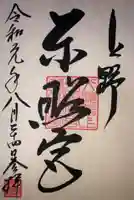 上野
東照宮
令和元年八月二十四日参拝